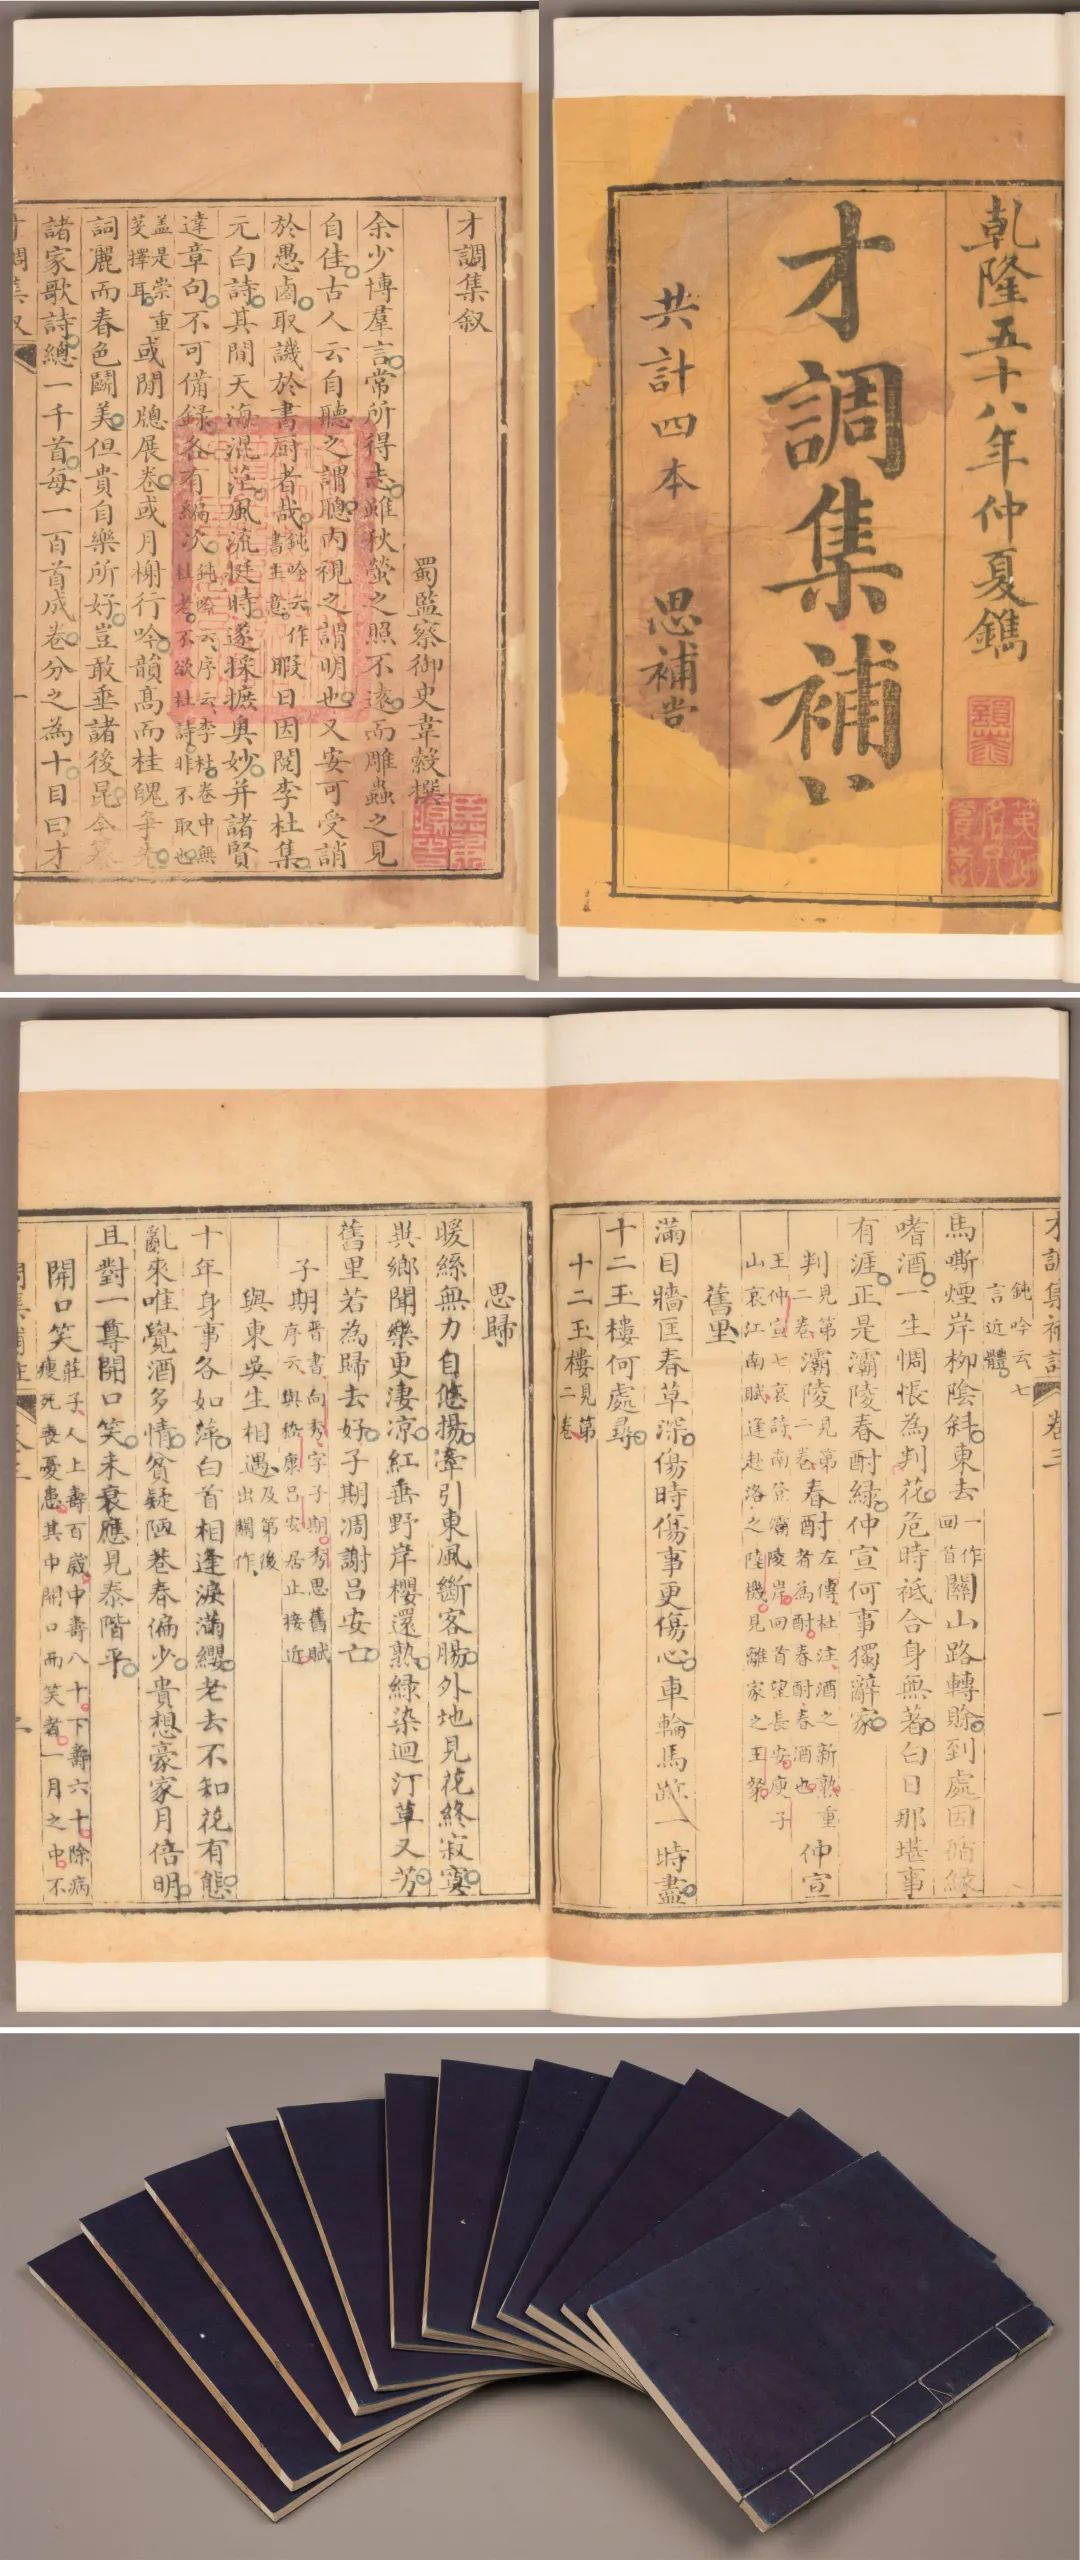 乾隆五十八年仲夏鐫
才調集補
共計四本 思補堂
才調集叙
蜀監察御史韋縠撰
余少博羣言常所得志雖秋螢之照不遠而雕蟲之見
自佳古人云自聽之謂聰內視之謂明也又安可受誚
於愚鹵取譏於書厨者哉鈍吟云作書主意暇日因閱李杜集
元白詩其間天海混茫風流挺特遂採摭奥妙并諸賢
達章句不可備録各有編次鈍吟云序云李杜卷中無杜老不欲杜詩非不取也
盖是崇重芟擇耳或閒牕展卷或月榭行吟韻高而桂魄爭光
詞麗而春色鬭美但貴自樂所好豈敢垂諸後昆今纂
諸家歌詩總一千首每一百首成卷分之為十目曰才
才調集叙
一
才調集補註 卷三 一
鈍吟云七言近體
馬嘶煙岸柳陰斜東去一作回首關山路轉賒到處因循緣
嗜酒一生惆悵為判花危時祗合身無著白日那堪事
有涯正是灞陵春酎綠仲宣何事獨辭家
判見第二卷灞陵見第二卷春酎左傳杜注酒之新熟重者為酎春酎春酒也仲宣
王仲宣七哀詩南登灞陵岸回首望長安庾子山哀江南賦逢赴洛之陸機見離家之王粲
舊里
滿目牆匡春草深傷時傷事更傷心車輪馬跡一時盡
十二玉樓何處尋
十二玉樓見第二卷
思歸
暖絲無力自悠揚牽引東風斷客腸外地見花終寂寞
異鄉聞樂更淒涼紅垂野岸櫻還熟綠染迴汀草又芳
舊里若為歸去好子期凋謝呂安亡
子期晋書向秀字子期秀思舊賦序云與嵇康呂安居止接近
與東吳生相遇及第後出關作
十年身事各如萍白首相逢淚滿纓老去不知花有態
亂來唯覺酒多情貧疑陋巷春偏少貴想豪家月倍明
且對一尊開口笑未衰應見泰階平
開口笑莊子人上壽百歲中壽八十下壽六十除病瘦死喪憂患其中開口而笑者一月之中不